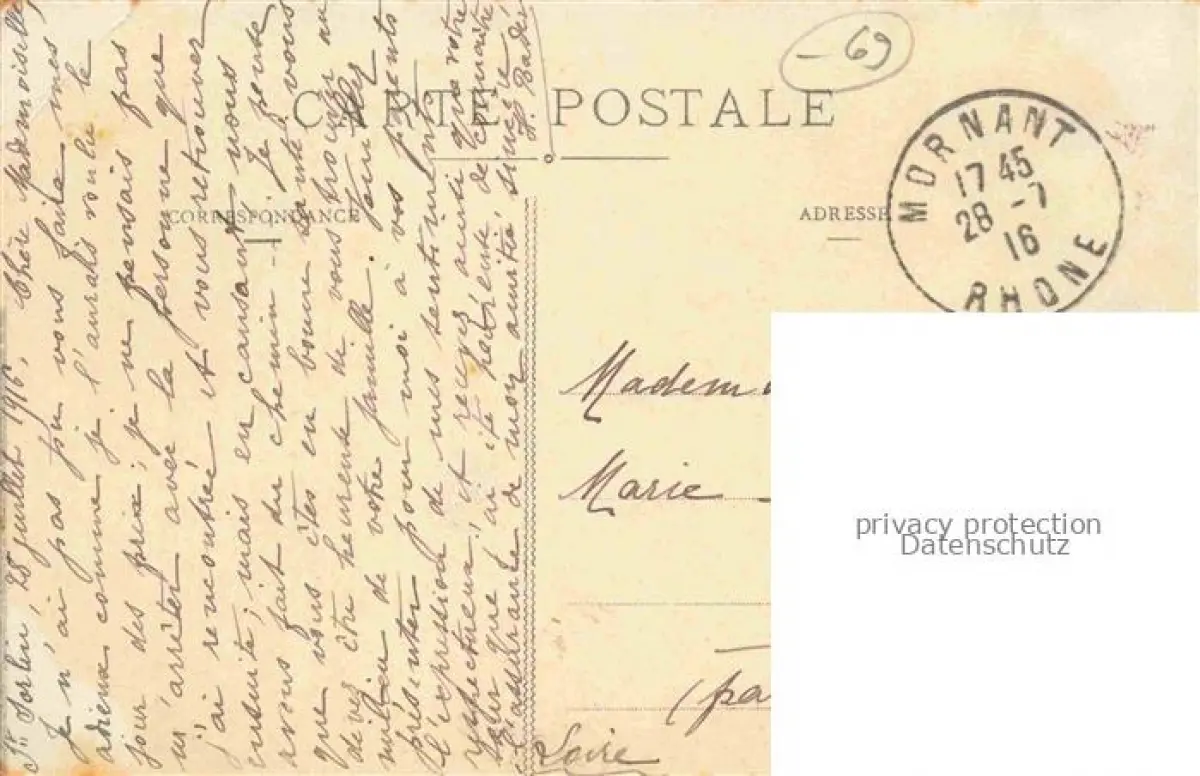 - 69
CARTE POSTALE
CORRESPONDANCE
ADRESSE
MORNANT
17 45
28 -7
16
RHONE
St Sorlin, 28 juillet 1916. Chère Mademoiselle,
Je n'ai pas pu vous faire mes
adieux comme je l'aurais voulu le
jour des prix ; je ne pensais pas
m'arrêter avec la personne que
j'ai rencontrée et vous retrouver
ensuite, mais en causant nous
avons fait du chemin - Je pense
que vous êtes en bonne santé, vous
devez être heureuse de vous trouver au
milieu de votre famille. Veuillez
présenter pour moi à vos parents
l'expression de mes sentiments
respectueux, et recevez ainsi que votre
sœur que j'ai été heureuse de connaître
l'assurance de mon amitié sincère,
J. Bador
Madem
Marie
(pa
Loire
privacy protection
Datenschutz